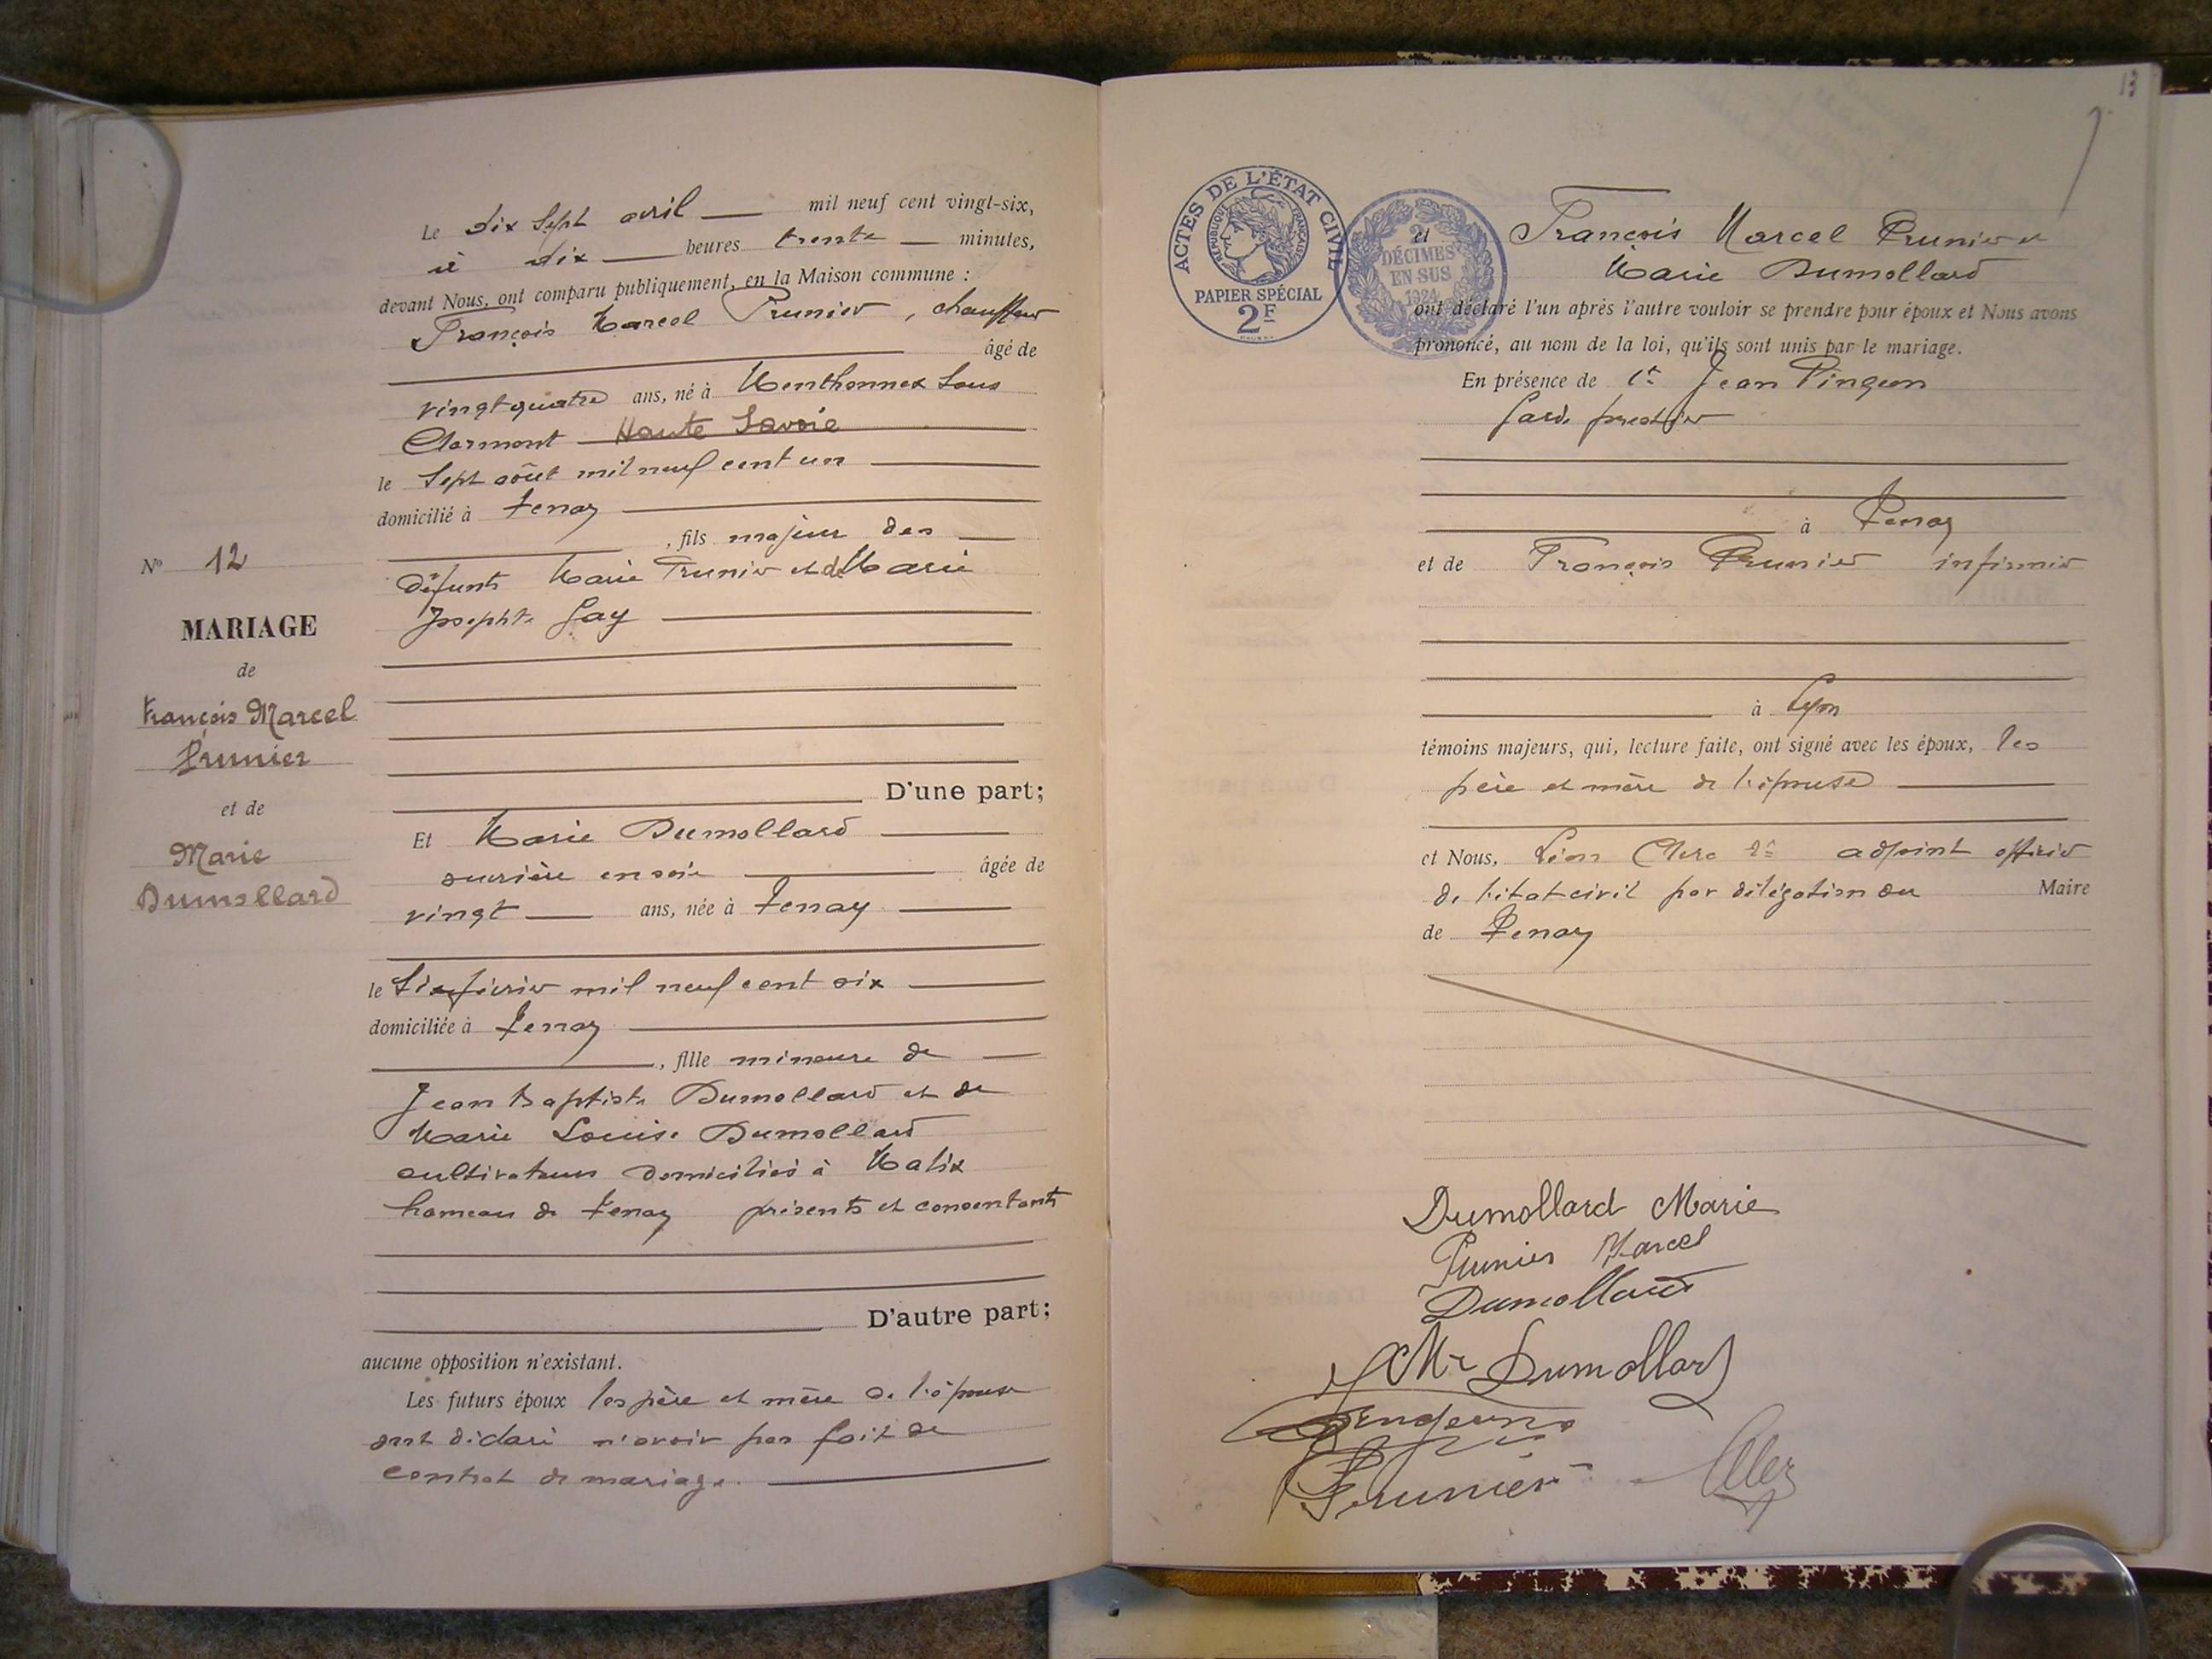 Le dix sept avril mil neuf cent vingt-six,
à dix heures trente minutes,
devant Nous, ont comparu publiquement, en la Maison commune :
François Marcel Prunier, chauffeur
âgé de
vingt quatre ans, né à Menthonnex sous
Clermont Haute Savoie
le sept août mil neuf cent un
domicilié à Tenay
, fils majeur des
défunts Marie Prunier et de Marie
Josephte Gay
D'une part;
Et Marie Dumollard
ouvrière en soie âgée de
vingt ans, née à Tenay
le six février mil neuf cent six
domiciliée à Tenay
, fille mineure de
Jean Baptiste Dumollard et de
Marie Louise Dumollard
cultivateurs domiciliés à Malix
hameau de Tenay présents et consentants
D'autre part;
aucune opposition n'existant.
Les futurs époux les père et mère de l'épouse
ont déclaré n'avoir pas fait de
contrat de mariage.
N° 12
MARIAGE
de
François Marcel
Prunier
et de
Marie
Dumollard
13
ACTES DE L'ÉTAT CIVIL
RÉPUBLIQUE FRANÇAISE
PAPIER SPÉCIAL
2F
2
DÉCIMES
EN SUS
1924
et François Marcel Prunier et
Marie Dumollard
ont déclaré l'un après l'autre vouloir se prendre pour époux et Nous avons
prononcé, au nom de la loi, qu'ils sont unis par le mariage.
En présence de Jean Pingeon
Garde forestier
à Tenay
et de François Prunier infirmier
à Lyon
témoins majeurs, qui, lecture faite, ont signé avec les époux, les
père et mère de l'épouse
et Nous, Léon Clerc adjoint officier
de l'état civil par délégation du Maire
de Tenay
Dumollard Marie
Prunier Marcel
Dumollard
Dumollard
Prunier